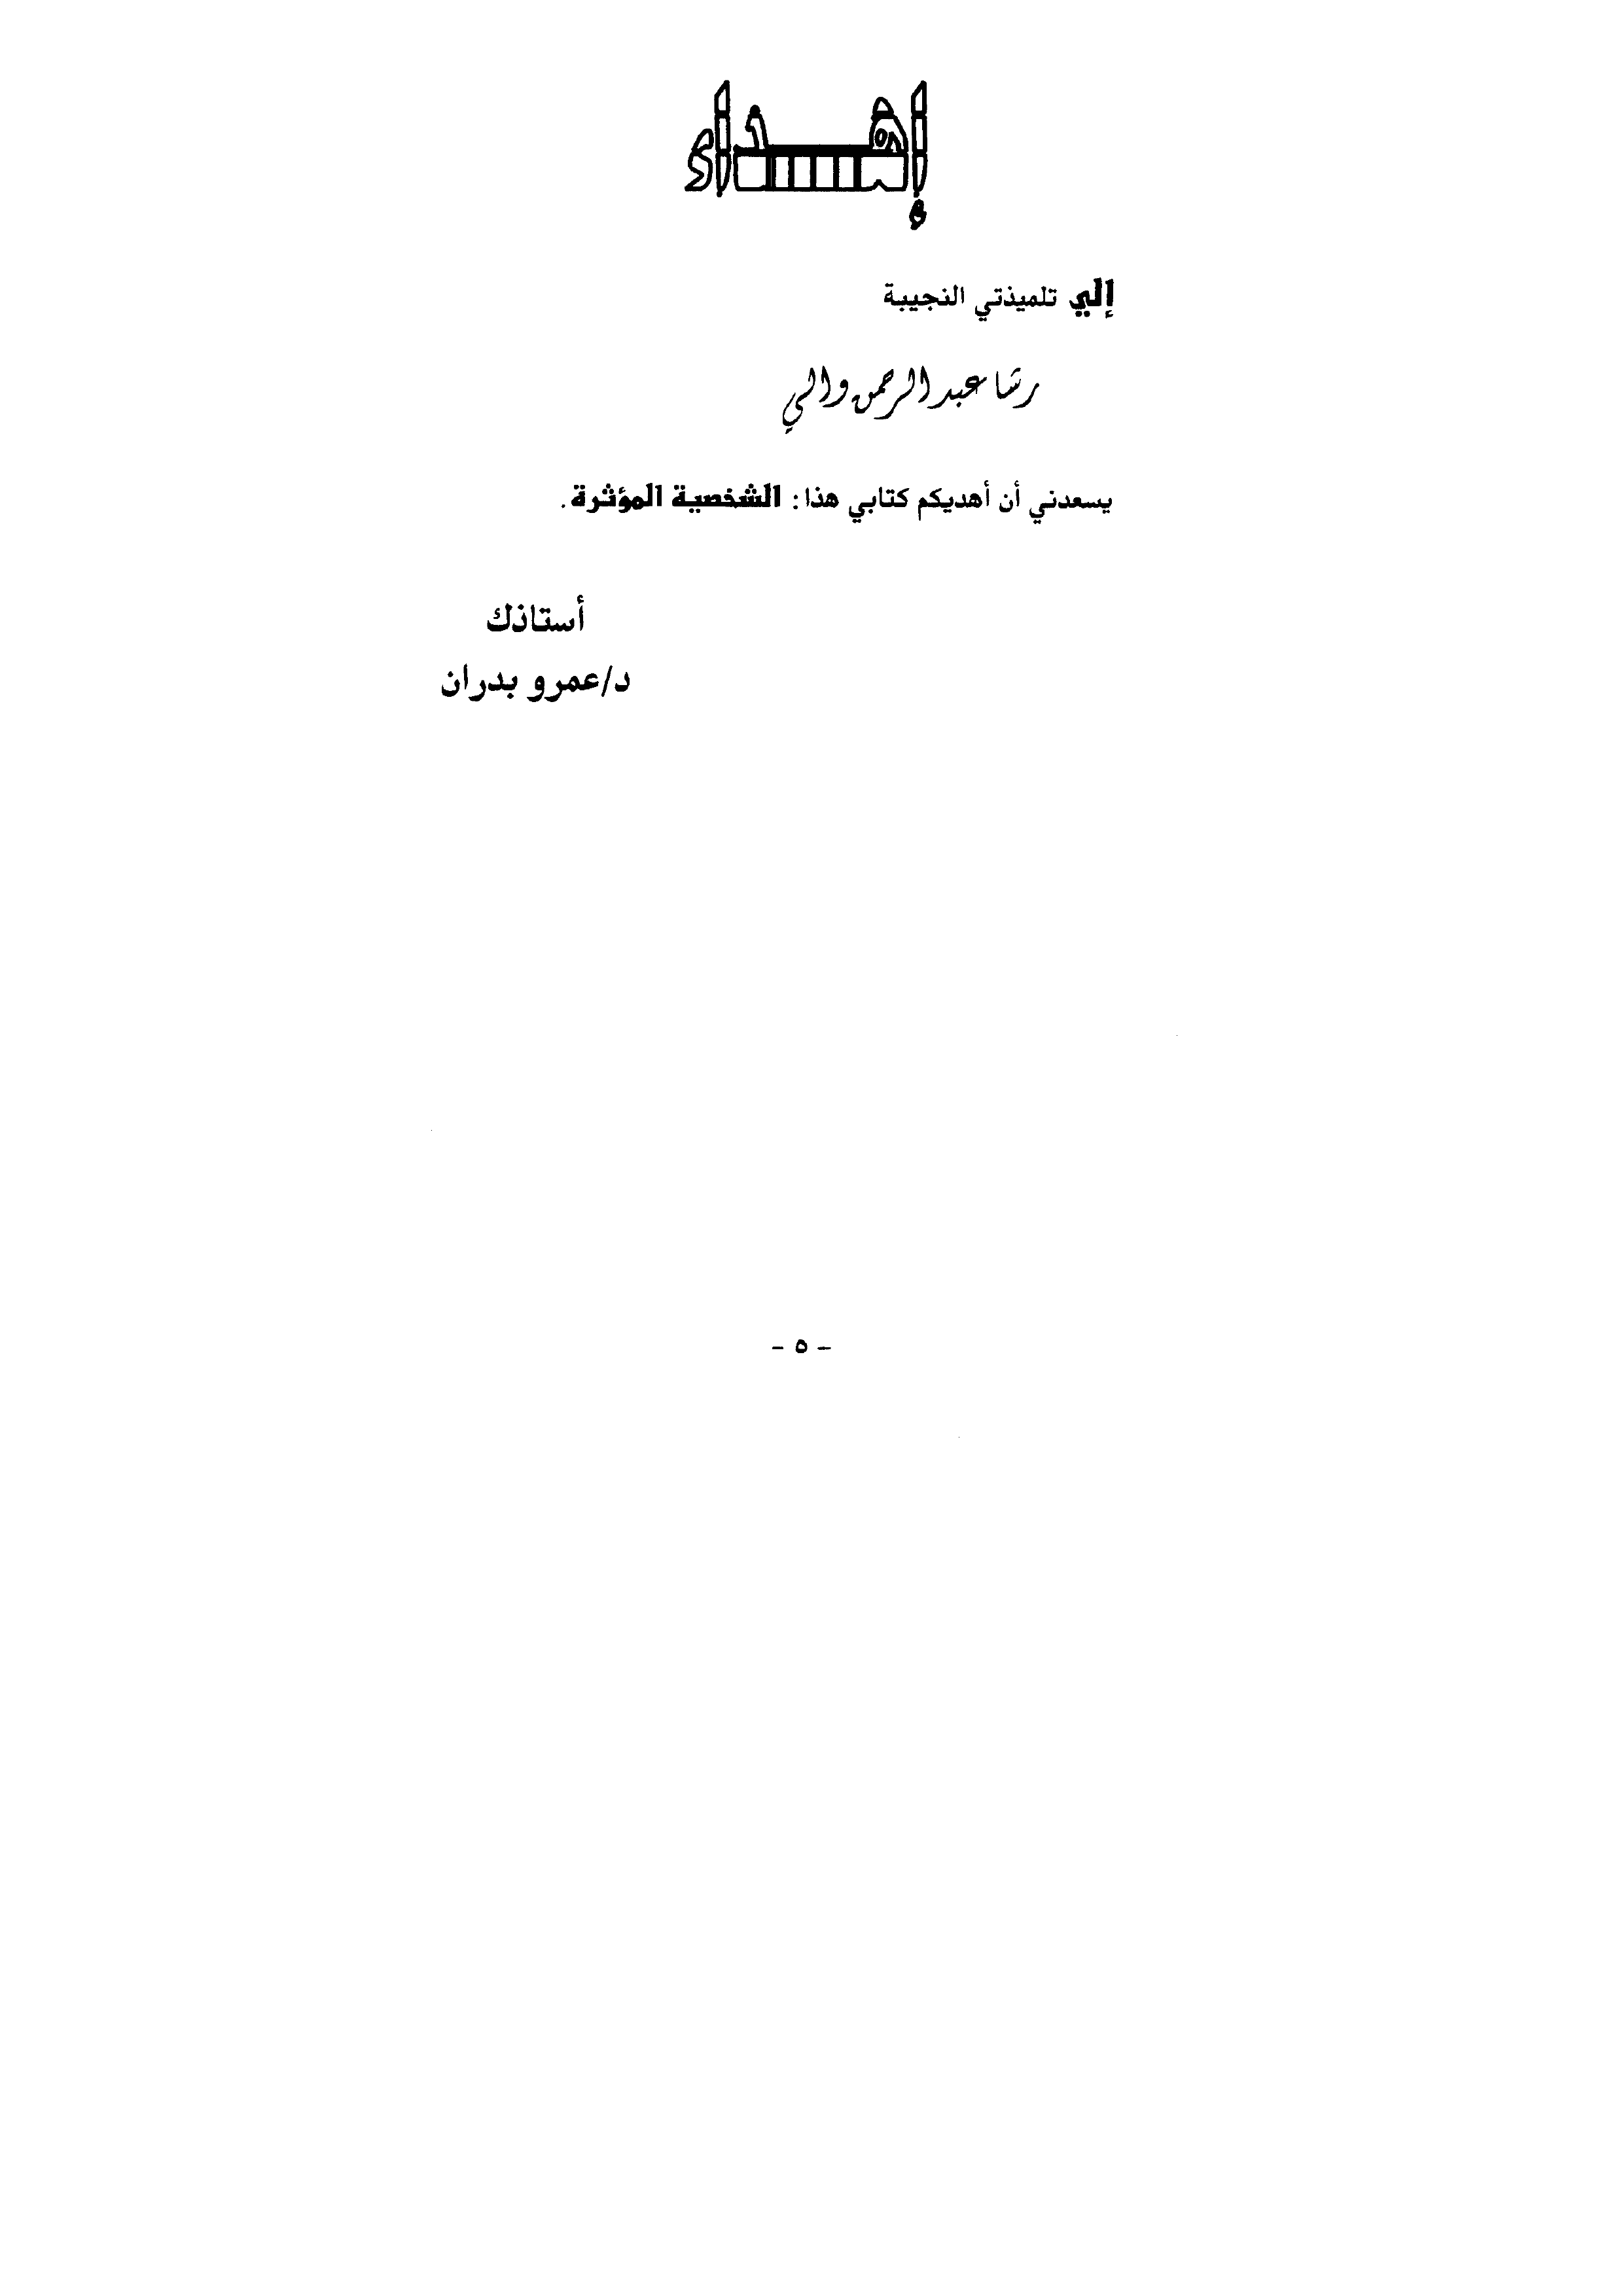 إهــداء
إلي تلميذتي النجيبة
رشا عبد الرحمن والي
يسعدني أن أهديكم كتابي هذا: الشخصية المؤثرة.
أستاذك
د/عمرو بدران
- ٥ -